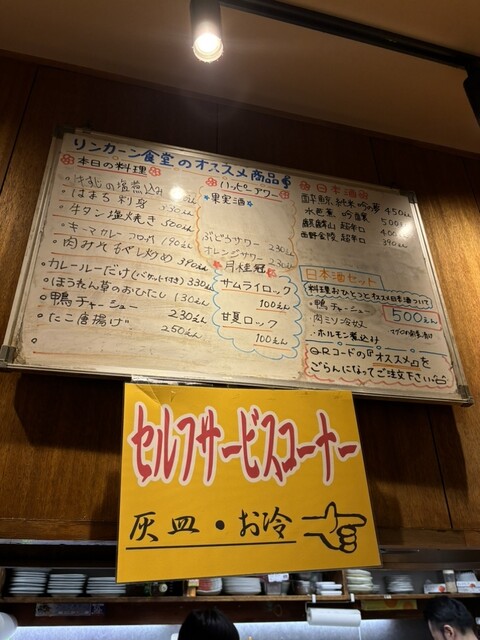 リンカーン食堂のオススメ商品
本日の料理
塩煮込み
はまち刺身 330えん
牛タン塩焼き 500えん
キーマカレーコロッケ 190えん
肉みそもやし炒め 390えん
カレールーだけ(バゲット付き) 330えん
ほうれん草のおひたし 130えん
鴨チャーシュー 230えん
たこ唐揚げ 250えん
ハッピーアワー
果実酒
ぶどうサワー 230えん
オレンジサワー 230えん
月桂冠
サムライロック
100えん
甘夏ロック
100えん
日本酒
純米吟 450えん
水芭蕉 吟醸 500えん
麒麟山 超辛口 400
西野金陵 超辛口 390えん
日本酒セット
料理おひとつとオススメ日本酒ついて
・鴨チャーシュー 500えん
肉ミソ冷奴
・ホルモン煮込み
QRコードの『オススメ』を
ごらんになってご注文下さい
セルフサービスコーナー
灰皿・お冷